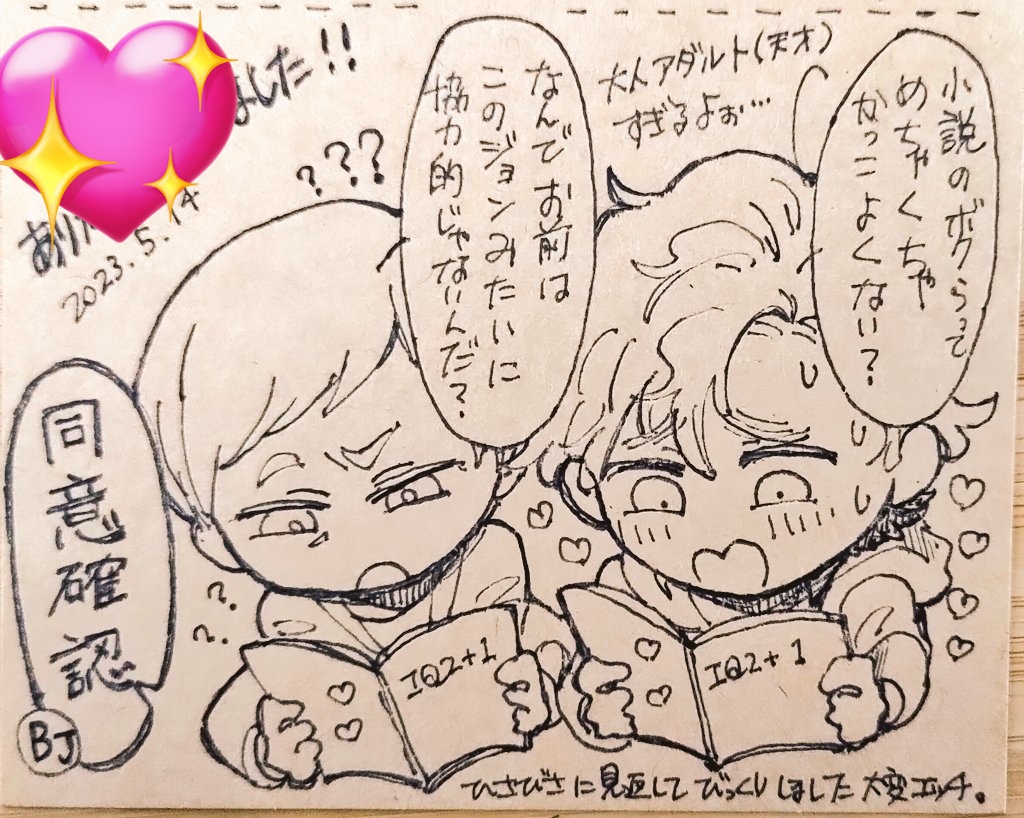 小説のボクらって
めちゃくちゃ
かっこよくない？
大人アダルト(天才)
すぎるよぉ…
なんでお前は
このジョンみたいに
協力的じゃないんだ？
ました!!
???
2023.5.14
同意確認
BJ
??
IQ2+1
IQ2+1
ひさびさに見返してびっくりしました大変エッチ。